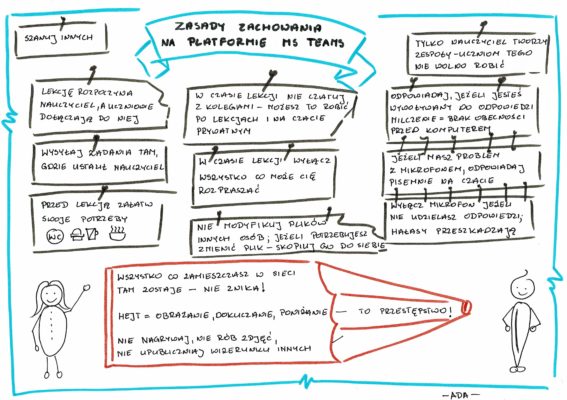 ZASADY ZACHOWANIA
NA PLATFORMIE MS TEAMS
SZANUJ INNYCH
LEKCJĘ ROZPOCZYNA
NAUCZYCIEL, A UCZNIOWIE
DOŁĄCZAJĄ DO NIEJ
WYSYŁAJ ZADANIA TAM,
GDZIE USTALIŁ NAUCZYCIEL
PRZED LEKCJĄ ZAŁATW
SWOJE POTRZEBY
WC
W CZASIE LEKCJI NIE CZATUJ
Z KOLEGAMI – MOŻESZ TO ROBIĆ
PO LEKCJACH I NA CZACIE
PRYWATNYM
W CZASIE LEKCJI WYŁĄCZ
WSZYSTKO CO MOŻE CIĘ
ROZPRASZAĆ
NIE MODYFIKUJ PLIKÓW
INNYCH OSÓB; JEŻELI POTRZEBUJESZ
ZMIENIĆ PLIK – SKOPIUJ GO DO SIEBIE
TYLKO NAUCZYCIEL TWORZY
ZESPOŁY – UCZNIOM TEGO
NIE WOLNO ROBIĆ
ODPOWIADAJ, JEŻELI JESTEŚ
WYWOŁYWANY DO ODPOWIEDZI
MILCZENIE = BRAK OBECNOŚCI
PRZED KOMPUTEREM
JEŻELI MASZ PROBLEM
Z MIKROFONEM, ODPOWIADAJ
PISEMNIE NA CZACIE
WYŁĄCZ MIKROFON JEŻELI
NIE UDZIELASZ ODPOWIEDZI;
HAŁASY PRZESZKADZAJĄ
WSZYSTKO CO ZAMIESZCZASZ W SIECI
TAM ZOSTAJE – NIE ZNIKA!
HEJT = OBRAŻANIE, DOKUCZANIE, PONIŻANIE – TO PRZESTĘPSTWO!
NIE NAGRYWAJ, NIE RÓB ZDJĘĆ,
NIE UPUBLICZNIAJ WIZERUNKU INNYCH
– ADA –